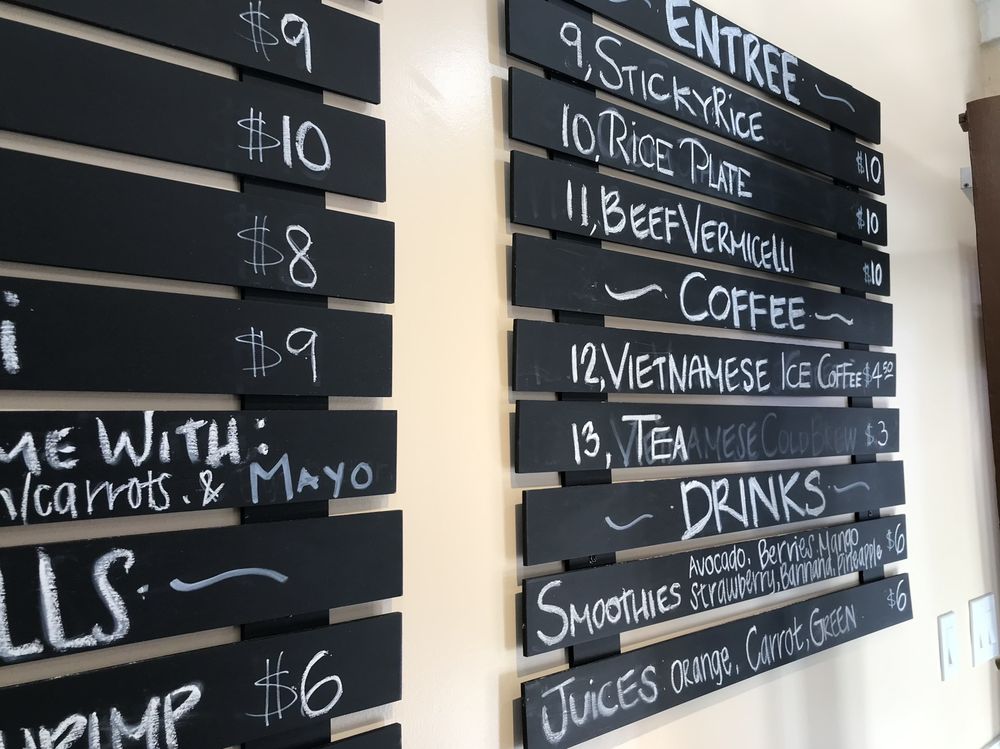 $9
$10
$8
i $9
ME WITH:
/carrots. & MAYO
LLS
SHRIMP $6
ENTREE
9, STICKY RICE $10
10, RICE PLATE $10
11, BEEF VERMICELLI $10
COFFEE
12, VIETNAMESE ICE COFFEE $4.50
13, TEA $3
DRINKS
SMOOTHIES Avocado, Berries, Mango $6
Strawberry, Bannana, Pineapple
JUICES Orange, Carrot, GREEN $6